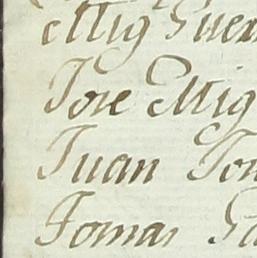 Mig Guer
Jose Mig
Juan Tor
Tomas Ga